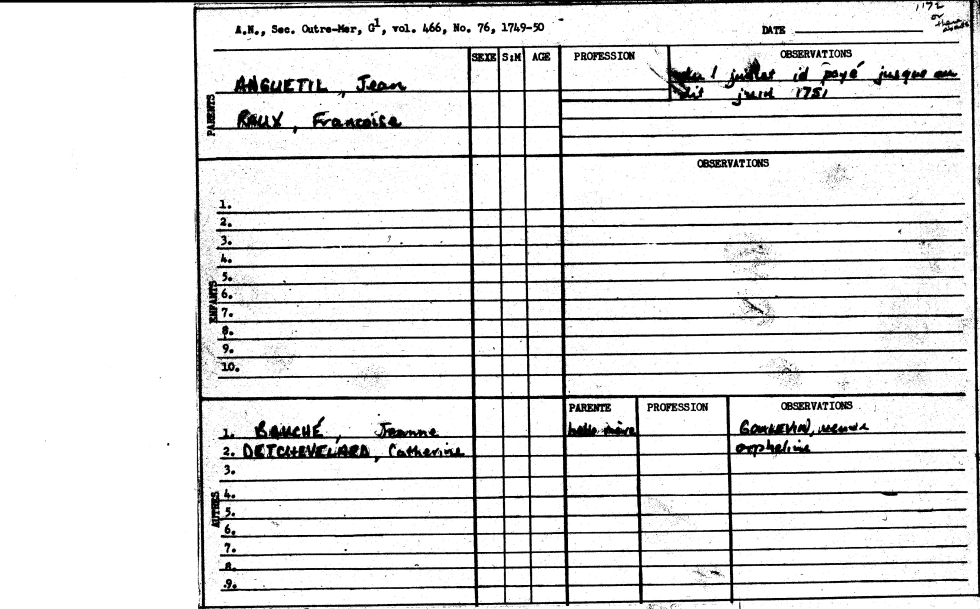 1172
or
A.N., Sec. Outre-Mer, G1, vol. 466, No. 76, 1749-50
DATE
SEXE S:M AGE PROFESSION OBSERVATIONS
PARENTS
ANGUETIL, Jean
du 1 juillet id payé jusque au
dit juin 1751
RAUX, Francoise
OBSERVATIONS
ENFANTS
1.
2.
3.
4.
5.
6.
7.
8.
9.
10.
PARENTE PROFESSION OBSERVATIONS
AUTRES
1. BAUCHÉ, Jeanne belle mère
2. DETCHEVELARD, Catherine orpheline
3.
4.
5.
6.
7.
8.
9.